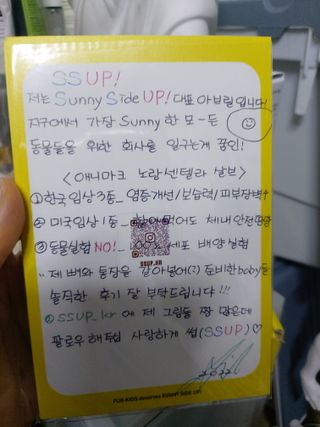 SSUP!
저는 Sunny Side UP! 대표 아브릴입니다!
지구에서 가장 Sunny 한 모-든
동물들을 위한 회사를 일구는게 꿈인!
<애니마크 노랑센텔라 살브>
①한국임상 3종_ 염증개선/보습력/피부장벽↑
②미국임상 1종_ 핥아먹어도 체내안전
③동물실험 NO!_ 100% 세포 배양 실험
SSUP.KR
"제 뼈와 통장을 갈아넣어(?) 준비한 baby들
솔직한 후기 잘 부탁드립니다!!!
@SSUP_kr 에 제 그림들 짱 많은데
팔로우 해
사랑하게 썹(SSUP)♡
2022
FUR-KIDS deserves SUNNY SIDE UP!